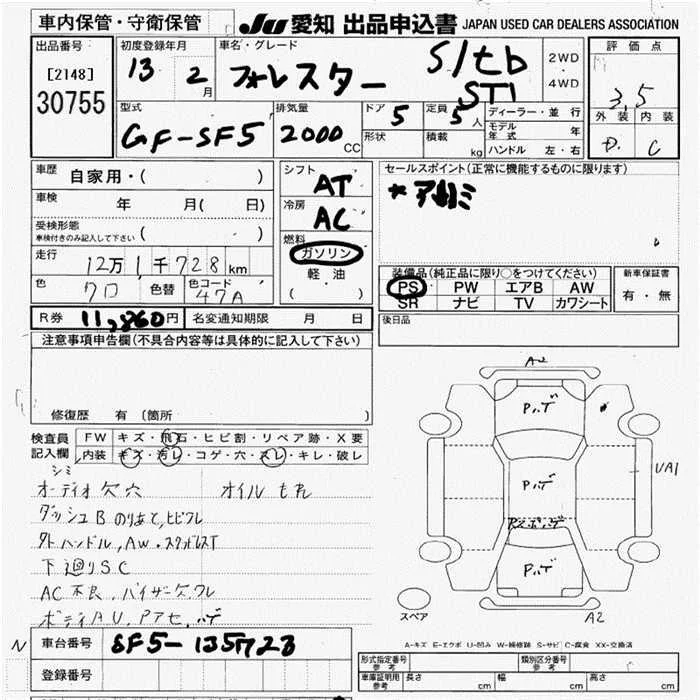 車内保管・守衛保管
JU 愛知 出品申込書 JAPAN USED CAR DEALERS ASSOCIATION
出品番号
[2148]
30755
初度登録年月
13 2月
車名・グレード
フォレスター S/tb
STI
2WD
・
4WD
評価点
3,5
外装 内装
D. C
型式
GF-SF5
排気量
2000 CC
ドア 5
形状
定員 5人
積載 kg
ディーラー・並行
モデル年式 年
ハンドル 左・右
車歴 自家用・( )
車検 年 月( 日)
受検形態
車検付きのみ記入して下さい ( )
走行
12万1千728km
色 クロ 色替 色コード 47A
シフト
AT
冷房
AC
燃料
ガソリン
軽油
( )
セールスポイント(正常に機能するものに限ります)
*アルミ
装備品(純正品に限り○をつけてください)
PS PW エアB AW
SR ナビ TV カワシート
新車保証書
有・無
R券 11,860円 名変通知期限 月 日
後日品
注意事項申告欄(不具合内容等は具体的に記入して下さい)
修復歴 有 [箇所 ]
検査員記入欄
FW キズ・飛石・ヒビ割・リペア跡・X要
内装 キズ・汚レ・コゲ・穴・スレ・キレ・破レ
シミ
オーディオ欠穴 オイルもれ
ダッシュB のりあと,ヒビワレ
外ハンドル,AW・スタッドレスT
下廻りSC
AC不良 バイザー欠,ワレ
ボディAU,Pアセ,ハゲ
A2
Pハゲ
Pハゲ
Pハゲ
UA1
A2
スペア
A-キズ E-エクボ U-凹み W-補修跡 S-サビ C-腐食 XX-交換済
N
車台番号 SF5-135723
登録番号
形式指定番号 参考
類別区分番号 参考
車庫証明用 参考 長さ cm 幅 cm 高さ cm